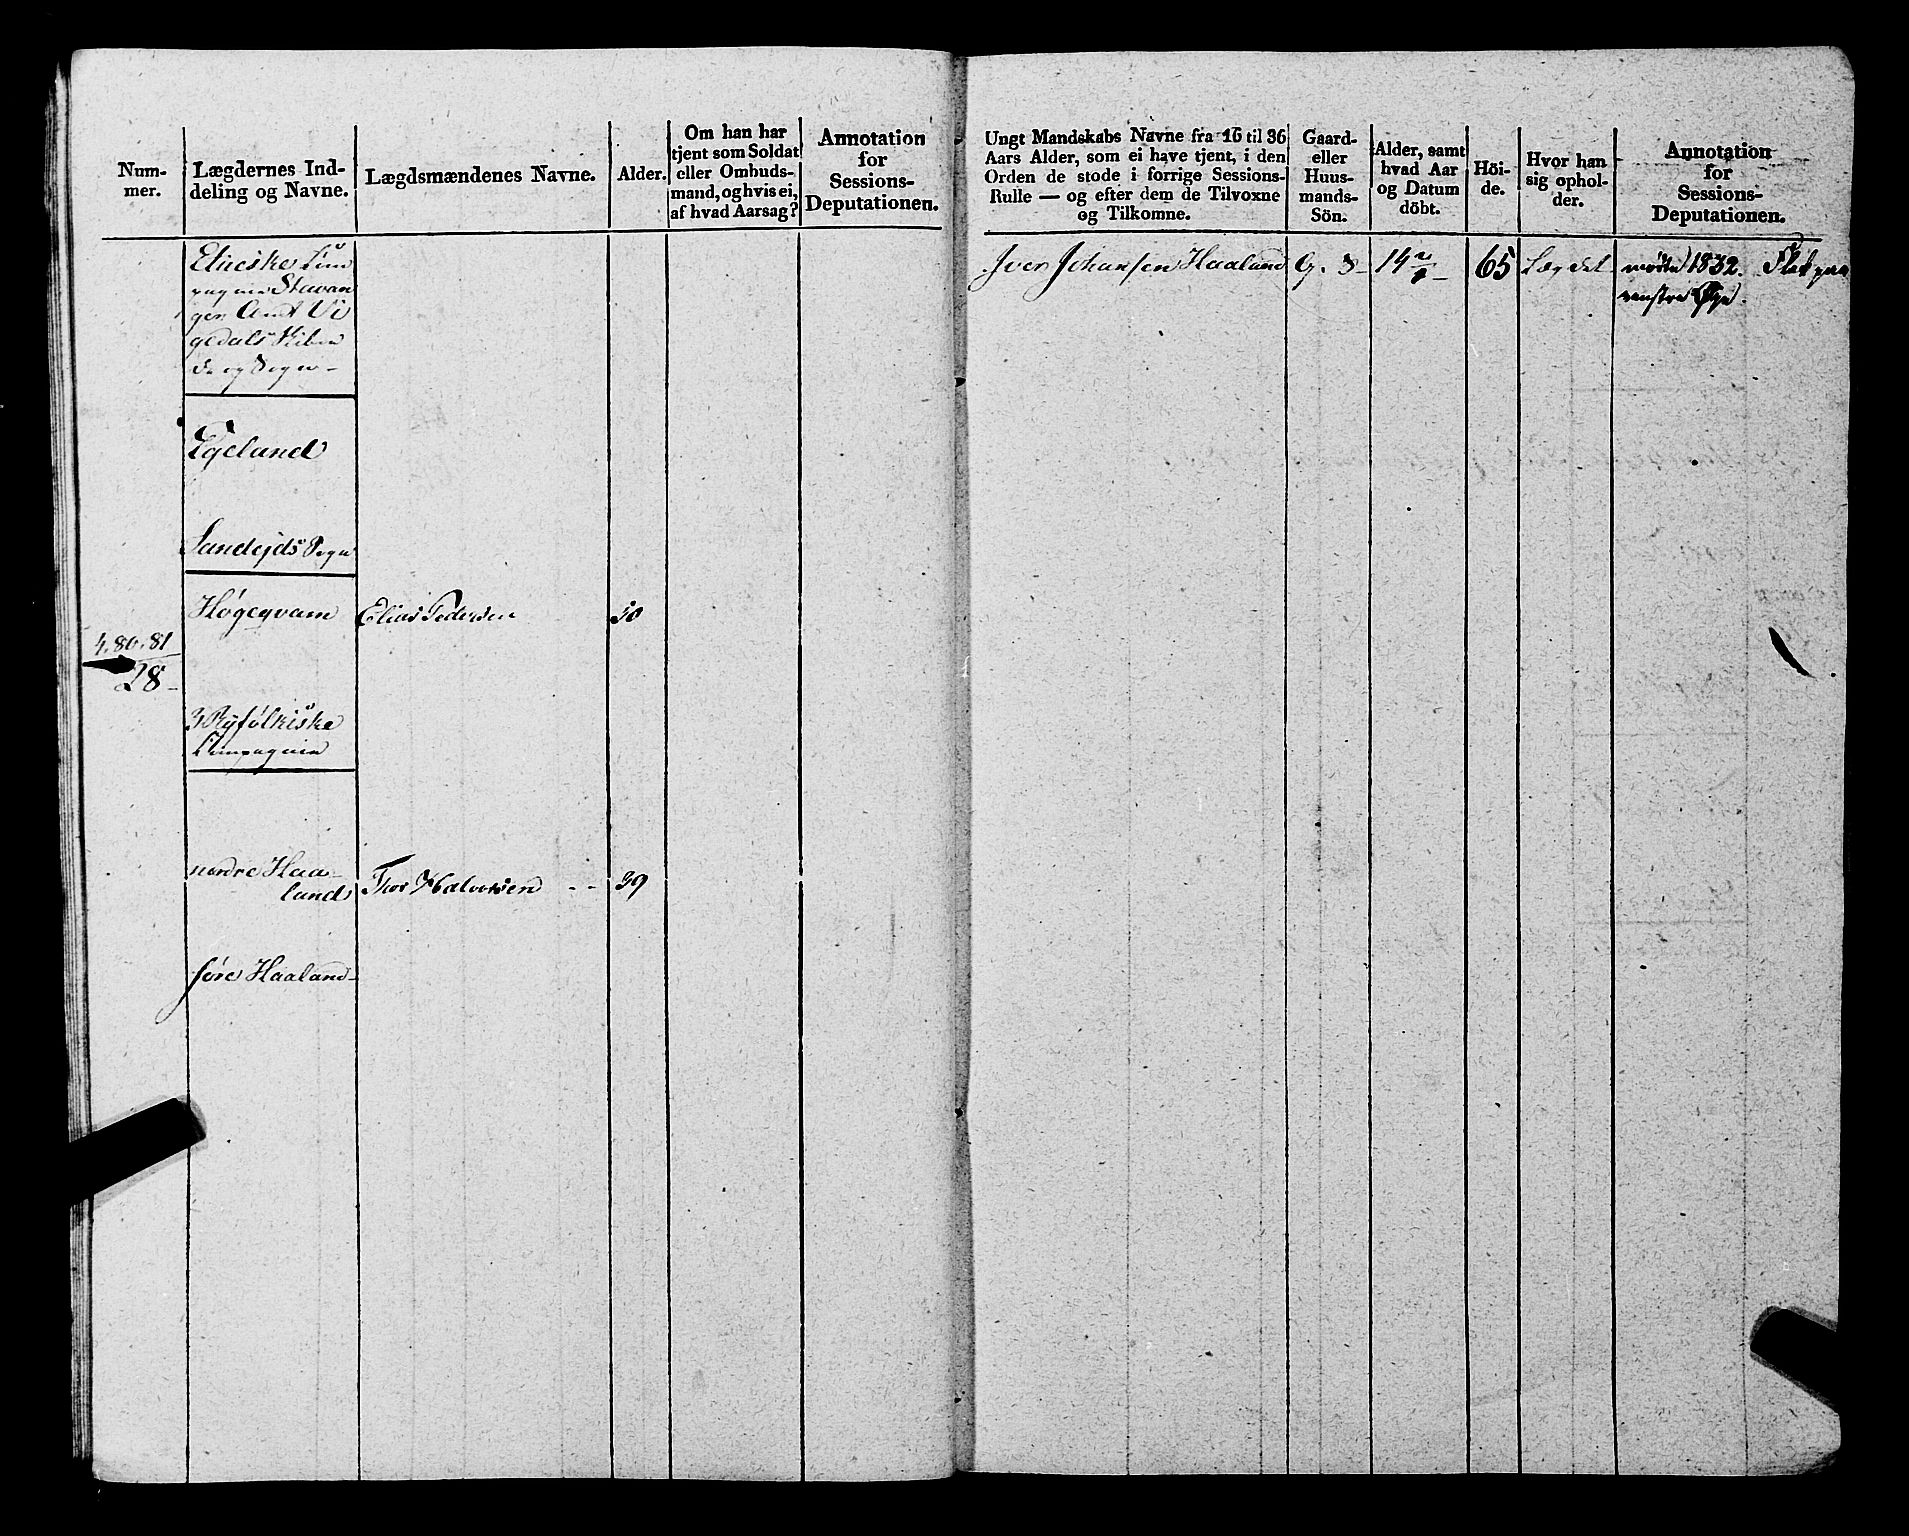 Num-
mer.
Lægdernes Ind-
deling og Navne.
Lægdsmændenes Navne.
Alder.
Om han har
tjent som Soldat
eller Ombuds-
mand, og hvis ei,
af hvad Aarsag?
Annotation
for
Sessions-
Deputationen.
Stavan
ger Amt Vi
gedals
og Sogn -
Egeland
Sandejds Sogn
Høgeqvam
Elias Pedersen
50
4.80.81
28
3 Ryfølkiske
Compagnie
nordre Haa-
land
Thor Halvorsen - -
39
søre Haaland -
Ungt Mandskabs Navne fra 16 til 36
Aars Alder, som ei have tjent, i den
Orden de stode i forrige Sessions-
Rulle — og efter dem de Tilvoxne
og Tilkomne.
Gaard-
eller
Huus-
mands-
Sön.
Alder, samt
hvad Aar
og Datum
döbt.
Höi-
de.
Hvor han
sig ophol-
der.
Annotation
for
Sessions-
Deputationen.
Iver Johansen Haaland
G. S -
14
65
Lægdet
mødte 1832. Flek paa
venstre Øye.